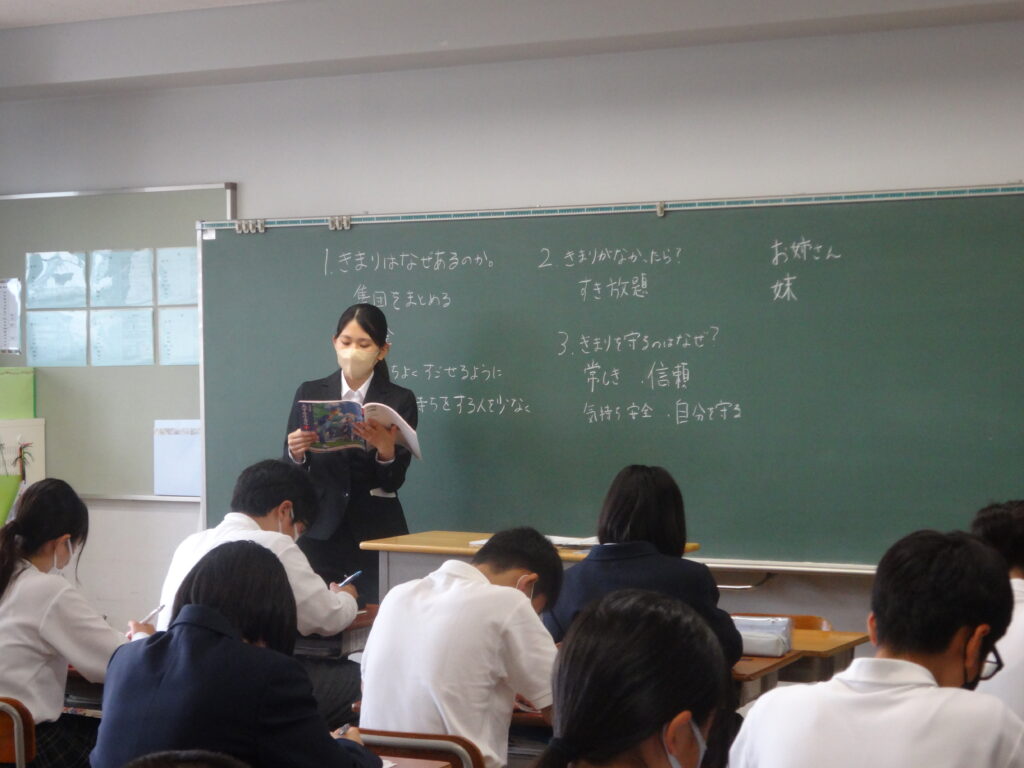 1. きまりはなぜあるのか。
集団をまとめる
ちよくすごせるように
まちをする人を少なく
2. きまりがなかったら？
すき放題
3. きまりを守るのはなぜ？
常しき ・信頼
気持ち 安全 ・自分を守る
お姉さん
妹